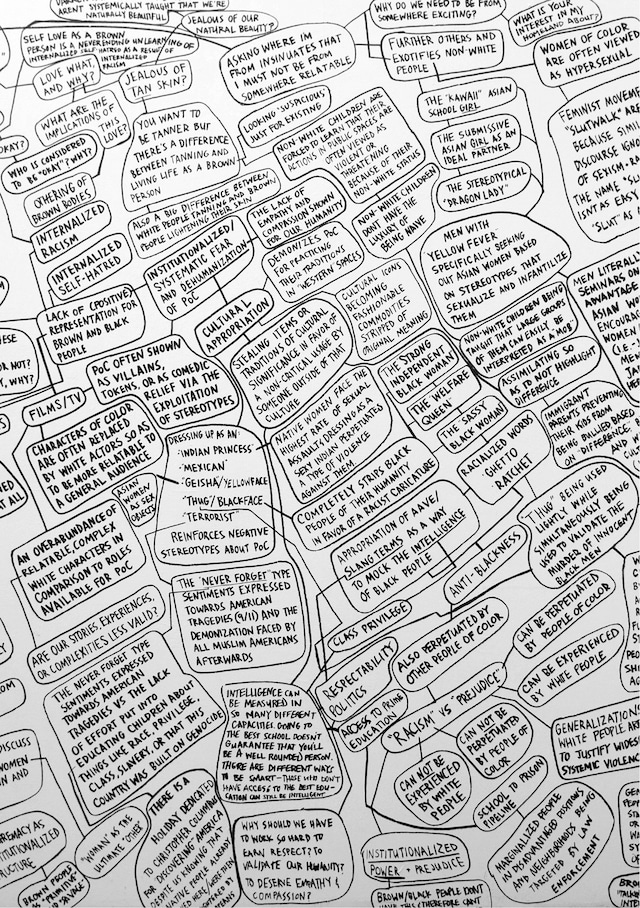 ARENT SYSTEMICALLY TAUGHT THAT WE'RE
NATURALLY BEAUTIFUL
JEALOUS OF OUR
NATURAL BEAUTY?
WHY DO WE NEED TO BE FROM
SOMEWHERE EXCITING?
WHAT IS YOUR
INTEREST IN MY
HOMELAND ABOUT?
SELF LOVE AS A BROWN
PERSON IS A NEVERENDING UNLEARNING OF
INTERNALIZED SELF HATRED AS A RESULT OF
INTERNALIZED
RACISM
ASKING WHERE IM
FROM INSINUATES THAT
I MUST NOT BE FROM
SOMEWHERE RELATABLE
FURTHER OTHERS AND
EXOTIFIES NON-WHITE
PEOPLE
WOMEN OF COLOR
ARE OFTEN VIEWED
AS HYPERSEXUAL
LOVE WHAT,
AND WHY?
JEALOUS OF
TAN SKIN?
WHAT ARE THE
IMPLICATIONS OF
THIS LOVE?
YOU WANT TO
BE TANNER BUT
THERE'S A DIFFERENCE
BETWEEN TANNING AND
LIVING LIFE AS A BROWN
PERSON
LOOKING "SUSPICIOUS"
JUST FOR EXISTING
NON WHITE CHILDREN ARE
FORCED TO LEARN THAT THEIR
ACTIONS IN PUBLIC SPACES ARE
OFTEN VIEWED AS
VIOLENT OR
THREATENING
BECAUSE OF THEIR
NON-WHITE STATUS
THE "KAWAII" ASIAN
SCHOOL GIRL
THE SUBMISSIVE
ASIAN GIRL AS AN
IDEAL PARTNER
THE STEREOTYPICAL
"DRAGON LADY"
FEMINIST MOVEME
"SLUTWALK" ARE
BECAUSE SIMP
DISCOURSE IGNO
OF SEXISM + RA
THE NAME "SLU
ISNT AS EASY
"SLUT" AS I
OKAY?
WHO IS CONSIDERED
TO BE "OKAY"? WHY?
OTHERING OF
BROWN BODIES
INTERNALIZED
RACISM
INTERNALIZED
SELF-HATRED
ALSO A BIG DIFFERENCE BETWEEN
WHITE PEOPLE TANNING AND BROWN
PEOPLE LIGHTENING THEIR SKIN
THE LACK OF
EMPATHY AND
COMPASSION SHOWN
FOR OUR HUMANITY
NON-WHITE CHILDREN
DONT HAVE THE
LUXURY OF
BEING NAIVE
INSTITUTIONALIZED/
SYSTEMATIC FEAR
AND DEHUMANIZATION
OF PoC
DEMONIZES PoC
FOR PRACTICING
THEIR TRADITIONS
IN "WESTERN SPACES"
MEN WITH
YELLOW FEVER
SPECIFICALLY SEEKING
OUT ASIAN WOMEN BASED
ON STEREOTYPES THAT
SEXUALIZE AND INFANTILIZE
THEM
LACK OF (POSITIVE)
REPRESENTATION FOR
BROWN AND BLACK
PEOPLE
CULTURAL
APPROPRIATION
CULTURAL ICONS
BECOMING
FASHIONABLE
COMMODITIES
STRIPPED OF
ORIGINAL MEANING
STEALING ITEMS OR
TRADITIONS OF CULTURAL
SIGNIFICANCE IN FAVOR OF
A NON-CRITICAL USAGE BY
SOMEONE OUTSIDE OF THAT
CULTURE
NON-WHITE CHILDREN BEING
TAUGHT THAT LARGE GROUPS
OF THEM CAN EASILY BE
INTERPRETED AS A "MOB"
MEN LITERALL
SEMINARS O
ADVANTAGE
ASIAN W
ENCOUR
WOME
PoC OFTEN SHOWN
AS VILLAINS,
TOKENS, OR AS COMEDIC
RELIEF VIA THE
EXPLOITATION
OF STEREOTYPES
FILMS/TV
THE STRONG
INDEPENDENT
BLACK WOMAN
THE "WELFARE
QUEEN"
THE SASSY
BLACK WOMAN
ASSIMILATING SO
AS TO NOT HIGHLIGHT
DIFFERENCE
CHARACTERS OF COLOR
ARE OFTEN REPLACED
BY WHITE ACTORS SO AS
TO BE MORE RELATABLE TO
A GENERAL AUDIENCE
DRESSING UP AS AN:
"INDIAN PRINCESS"
"MEXICAN"
"GEISHA"/YELLOWFACE
"THUG"/BLACKFACE
"TERRORIST"
REINFORCES NEGATIVE
STEREOTYPES ABOUT PoC
NATIVE WOMEN FACE THE
HIGHEST RATE OF SEXUAL
ASSAULT/DRESSING AS A
"SEXY" INDIAN PERPETUATES
A TYPE OF VIOLENCE
AGAINST THEM
RACIALIZED WORDS
GHETTO
RATCHET
IMMIGRANT
PARENTS PREVENTING
THEIR KIDS FROM
BEING BULLIED BASED
ON "DIFFERENCE"
ASIAN
WOMEN AS SEX
OBJECTS
COMPLETELY STRIPS BLACK
PEOPLE OF THEIR HUMANITY
IN FAVOR OF A RACIST CARICATURE
AN OVERABUNDANCE OF
RELATABLE, COMPLEX
WHITE CHARACTERS IN
COMPARISON TO ROLES
AVAILABLE FOR PoC
APPROPRIATION OF AAVE/
SLANG TERMS AS A WAY
TO MOCK THE INTELLIGENCE
OF BLACK PEOPLE
"THUG" BEING USED
LIGHTLY WHILE
SIMULTANEOUSLY BEING
USED TO VALIDATE THE
MURDER OF INNOCENT
BLACK MEN
ANTI-BLACKNESS
THE "NEVER FORGET" TYPE
SENTIMENTS EXPRESSED
TOWARDS AMERICAN
TRAGEDIES (9/11) AND THE
DEMONIZATION FACED BY
ALL MUSLIM AMERICANS
AFTERWARDS
ARE OUR STORIES, EXPERIENCES,
OR COMPLEXITIES LESS VALID?
CLASS PRIVILEGE
RESPECTABILITY
POLITICS
ALSO PERPETUATED BY
OTHER PEOPLE OF COLOR
CAN BE PERPETUATED
BY PEOPLE OF COLOR
THE NEVER FORGET TYPE
SENTIMENTS EXPRESSED
TOWARDS AMERICAN
TRAGEDIES VS THE LACK
OF EFFORT PUT INTO
EDUCATING CHILDREN ABOUT
THINGS LIKE RACE, PRIVILEGE,
CLASS, SLAVERY, OR THAT THIS
COUNTRY WAS BUILT ON GENOCIDE
INTELLIGENCE CAN
BE MEASURED IN
SO MANY DIFFERENT
CAPACITIES. GOING TO
THE BEST SCHOOL DOESN'T
GUARANTEE THAT YOU'LL
BE A WELL ROUNDED PERSON.
THERE ARE DIFFERENT WAYS
TO BE SMART—THOSE WHO DON'T
HAVE ACCESS TO THE BEST EDU-
CATION CAN STILL BE INTELLIGENT
ACCESS TO PRIME
EDUCATION
"RACISM" VS "PREJUDICE"
CAN BE EXPERIENCED
BY WHITE PEOPLE
CAN NOT BE
PERPETUATED
BY PEOPLE OF
COLOR
CAN NOT BE
EXPERIENCED
BY WHITE
PEOPLE
GENERALIZATION
WHITE PEOPLE AN
TO JUSTIFY WIDES
SYSTEMIC VIOLENC
SCHOOL TO PRISON
PIPELINE
DISCUSS
WOMEN
IN AND
"WOMAN" AS THE
ULTIMATE "OTHER"
THERE IS A
HOLIDAY DEDICATED
TO CHRISTOPHER COLUMBUS
FOR DISCOVERING AMERICA
DESPITE US KNOWING THAT
NATIVE PEOPLE ALREADY
WHY SHOULD WE HAVE
TO WORK SO HARD TO
EARN RESPECT? TO
VALIDATE OUR HUMANITY?
TO DESERVE EMPATHY &
COMPASSION?
MARGINALIZED PEOPLE
IN DISADVANTAGED POSITIONS
AND NEIGHBORHOODS BEING
TARGETED BY LAW
ENFORCEMENT
INSTITUTIONALIZED
POWER + PREJUDICE
REMACY AS
TUTIONALIZED
RUCTURE
BROWN PEOPLE
AS "PRIMITIVE"
BROWN/BLACK PEOPLE DONT
HAVE THIS (THEREFORE CAN'T